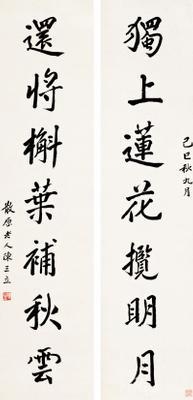 己巳秋九月
獨上蓮花攬明月
還將槲葉補秋雲
散原老人陳三立